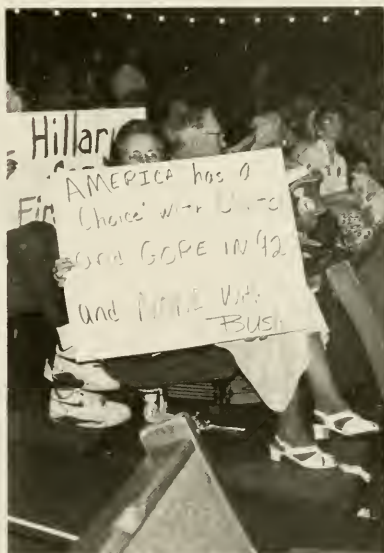 Hillar
Fir
AMERICA has a
Choice with
and GORE IN '92
and With
BUSH